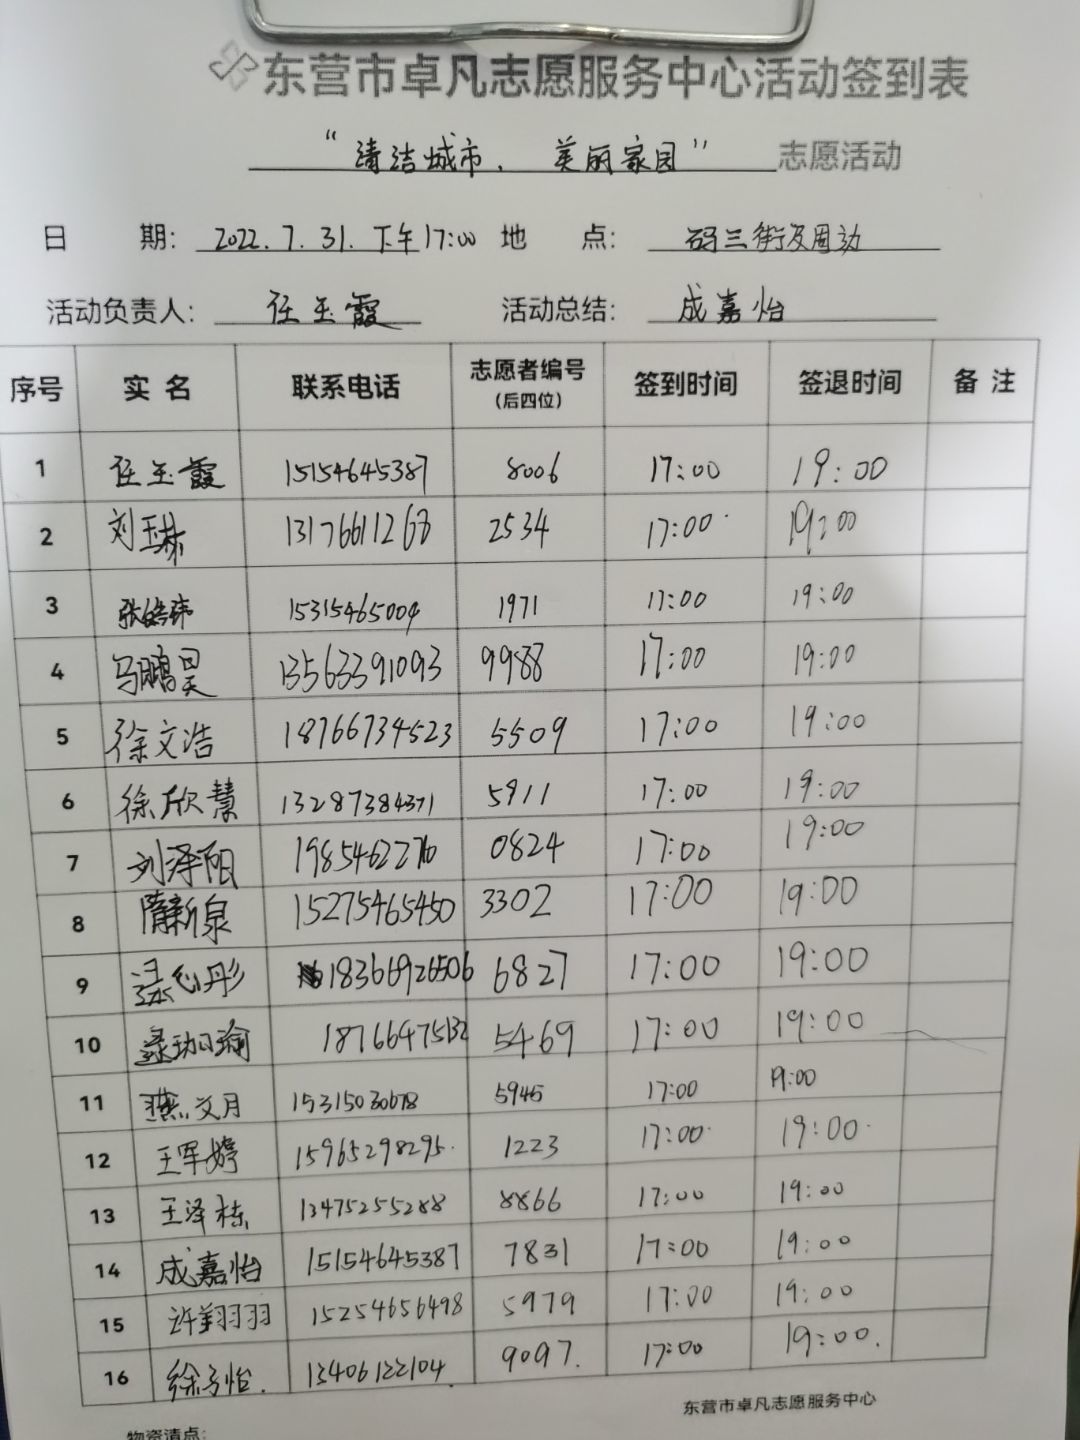 东营市卓凡志愿服务中心活动签到表
“清洁城市、美丽家园” 志愿活动
日 期: 2022.7.31.下午17:00 地 点: 码三街及周边
活动负责人: 任玉霞 活动总结: 成嘉怡
序号 实名 联系电话 志愿者编号(后四位) 签到时间 签退时间 备注
1 任玉霞 15154645387 8006 17:00 19:00
2 刘玉琳 13176611268 2534 17:00 19:00
3 张皓玮 15315465004 1971 17:00 19:00
4 马鹏昊 13563391093 9988 17:00 19:00
5 徐文浩 18766734523 5509 17:00 19:00
6 徐欣慧 13287384371 5911 17:00 19:00
7 刘泽阳 19854622776 0824 17:00 19:00
8 隋新泉 15275465450 3302 17:00 19:00
9 18366926506 6827 17:00 19:00
10 18766475132 5469 17:00 19:00
11 燕文月 15315030678 5945 17:00 19:00
12 王军婷 15965298295. 1223 17:00 19:00
13 王泽栋 13475255288 8866 17:00 19:00
14 成嘉怡 15154645387 7831 17:00 19:00
15 许翔羽 15254656498 5979 17:00 19:00
16 徐子怡. 13406122104. 9097. 17:00 19:00.
东营市卓凡志愿服务中心
物资清点: